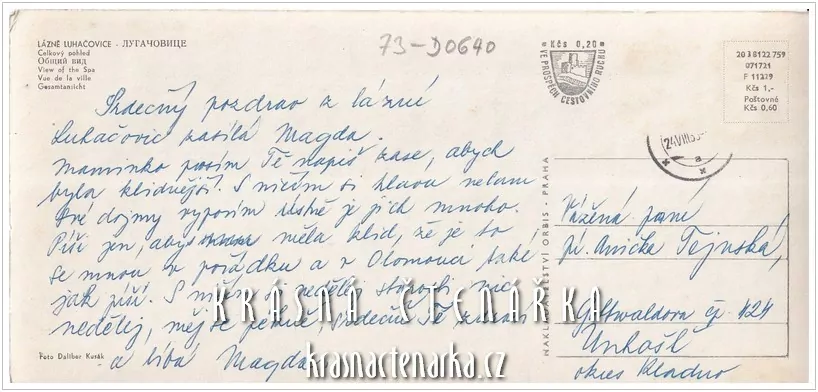 LÁZNĚ LUHAČOVICE - ЛУГАЧОВИЦЕ
Celkový pohled
Общий вид
View of the Spa
Vue de la ville
Gesamtansicht
73-D0640
Kčs 0,20
VE PROSPĚCH CESTOVNÍHO RUCHU
20 3 8122 759
071721
F 11229
Kčs 1,-
Poštovné
Kčs 0,60
Srdečný pozdrav z lázní
Luhačovic zasílá Magda.
Maminko prosím Tě napiš zase, abych
byla klidnější. S ničím si hlavu nelam
dojmy vypovím ústně je jich mnoho.
Píši jen, abys měla klid, že je to
se mnou v pořádku a v Olomouci také
jak píší. S
neděli, měj se pěkně. Srdečně Tě zdraví
a líbá Magda
24.VIII.
NAKLADATELSTVÍ ORBIS - PRAHA
Vážená paní
pí. Anička Tejnská,
Gottwaldova čp. 424
Unhošť
okres Kladno
Foto Dalibor Kusák
KRÁSNÁ ČTENÁŘKA
krasnactenarka.cz